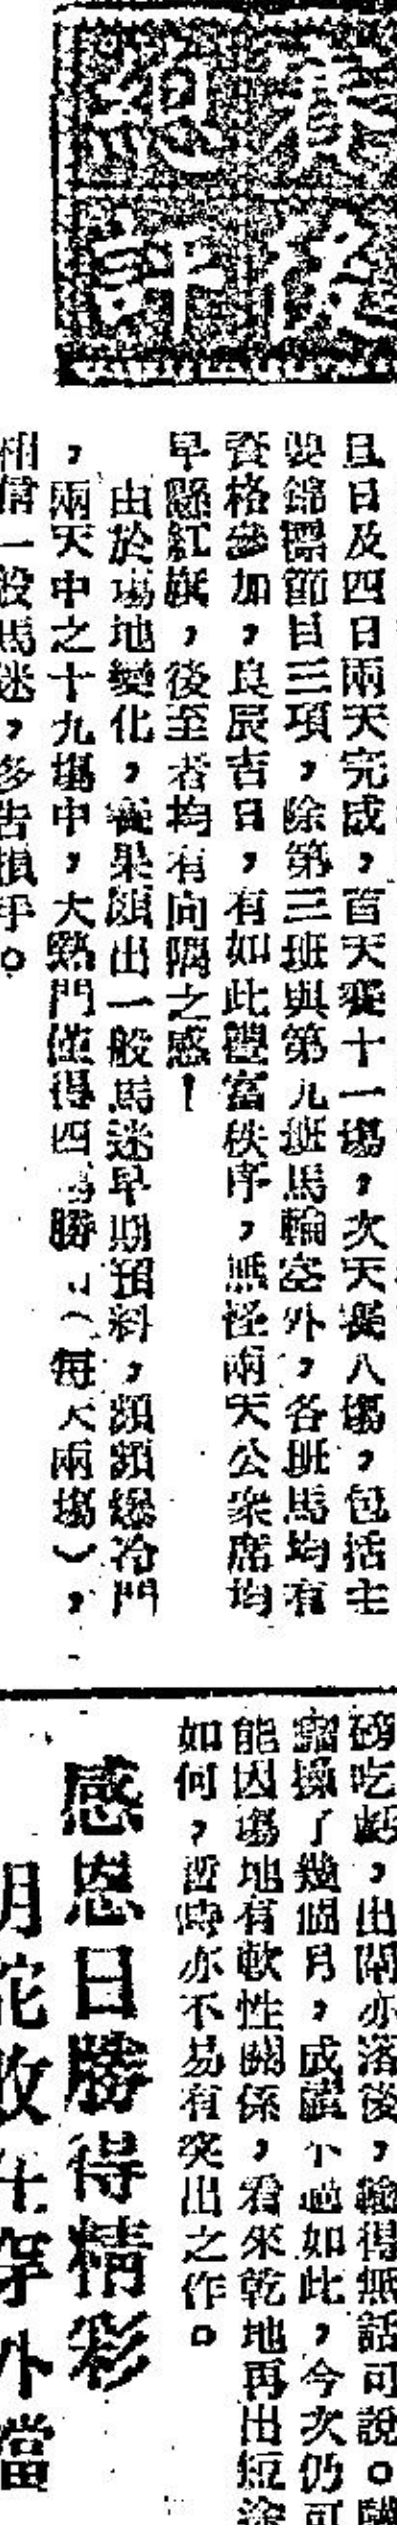 賽後
總評
且日及四日兩天完成，首天賽十一場，次天賽八場，包括主
要錦標節目三項，除第三班與第九班馬輪空外，各班馬均有
資格參加，良辰吉日，有如此豐富秩序，無怪兩天公衆席均
早懸紅旗，後至者均有向隅之感！
由於場地變化，賽果頗出一般馬迷早期預料，頻頻爆冷門
，兩天中之十九場中，大熱門僅得四場勝（每天兩場），
相信一般馬迷，多告損手。
磅吃虧，出閘亦落後，輸得無話可說。
操了幾個月，成績不過如此，今次仍可
能因場地有軟性關係，看來乾地再出短途
如何，暫時亦不易有突出之作。
感恩日勝得精彩
明駝敗在穿外檔